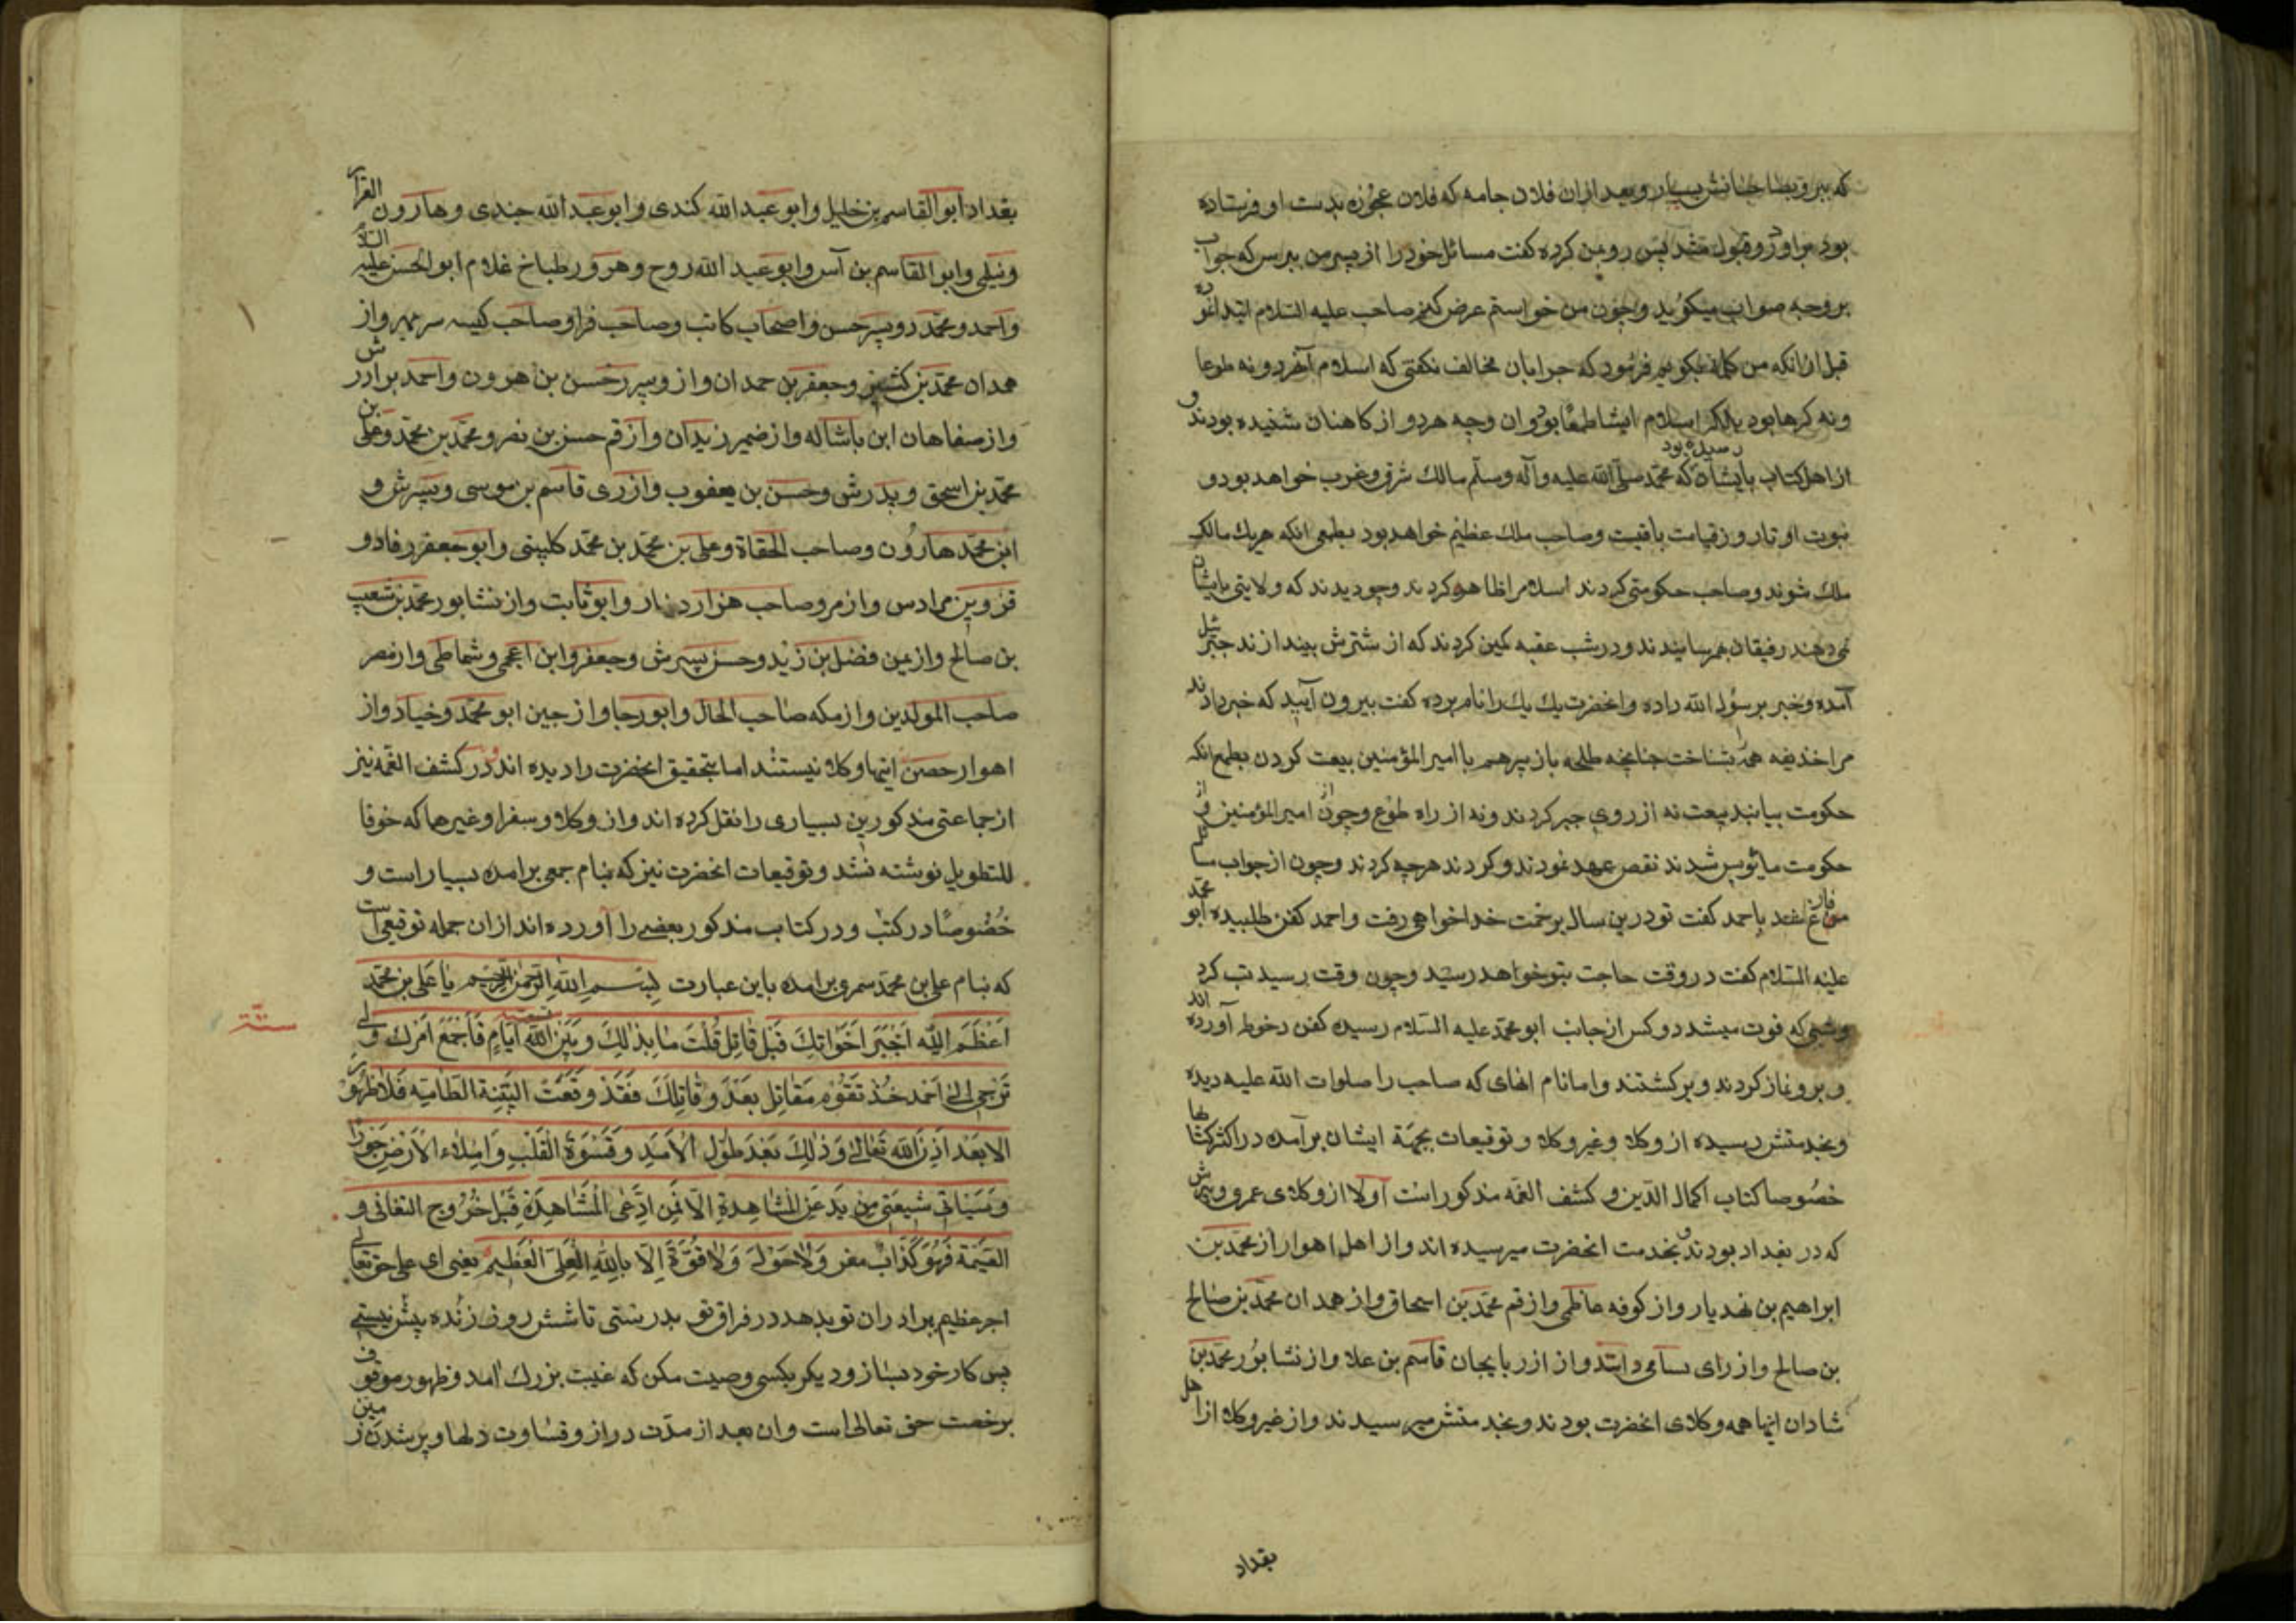 که ببر و بصاحبانش بسپار و بعد از ان فلان جامه که فلان عجوزه بدست او فرستاده
بود بر اورد و قبول پس رو بمن کرده کفت مسائل خود را از پسر من بپرس که جواب
بر وجه صواب میکوید و چون من خواستم عرض کنم صاحب علیه السلام ابتدا نموده
قبل ازانکه من کلام بکویم فرمود که چرا بان مخالف نکفتی که اسلام آن هر دو نه طوعا
و نه کرها بود بلکه اسلام ایشان طمعا بود و ان وجه هر دو از کاهنان شنیده بودند و
از اهل کتاب بایشان رسیده بود که محمد صلی الله علیه و آله وسلم مالک شرق و غرب خواهد بود و
نبوت او تا روز قیامت باقیست و صاحب ملك عظیم خواهد بود بطمع انکه هریك مالک
ملك شوند و صاحب حکومتی کردند اسلام را ظاهر کردند و چو دیدند که ولایتی بایشان
نمی دهند رفیقان بهم رسانیدند و در شب عقبه کمین کردند که از شترش بیندازند جبرئیل
آمده و خبر برسول الله داده و انحضرت یك یك را نام برده کفت بیرون آیید که خبر دادند
مرا حذیفه همه را بشناخت چنانچه طلحه با زبیر هم با امیر المؤمنین بیعت کردن بطمع انکه
حکومت بیابند بیعت نه از روی جبر کردند و نه از راه طوع و چون از امیر المؤمنین و از
حکومت مایوس شدند نقض عهد نمودند و کردند هرچه کردند و چون از جواب مسائلم
فارغ شد باحمد کفت تو درین سال برحمت خدا خواهی رفت و احمد کفن طلبیده ابو محمد
علیه السلام کفت در وقت حاجت بتو خواهد رسید و چون وقت رسید تب کرد
و شبی که فوت میشد دو کس از جانب ابو محمد علیه السلام رسیده کفن و حنوط آورده اند
و برو نماز کردند و برکشتند و اما نام انهای که صاحب را صلوات الله علیه دیده
و بخدمتش رسیده از وکلا و غیر وکلا و توقیعات بجهة ایشان بر آمده در اکثر کتابها
خصوصا کتاب اکمال الدین و کشف الغمه مذکور است اولا از وکلای عمرو و پسرش
که در بغداد بودند و بخدمت انحضرت میرسیده اند و از اهل اهواز محمد بن
ابراهیم بن مهدیار و از کوفه عاطمی و از قم محمد بن اسحاق و از همدان محمد بن صالح
بن صالح و از رای بسامی و اسدی و از اذربایجان قاسم بن علا و از نشابور محمد بن
شادان اینها همه وکلای انحضرت بودند و بخدمتش میرسیدند و از غیر وکلا از اهل
بغداد
بغداد ابو القاسم بن خلیل و ابو عبد الله کندی و ابو عبد الله جندی و هارون القزاز
و نیلی و ابو القاسم بن آس و ابو عبد الله روح و هرور طباخ غلام ابو الحسن علیه السلام
و احمد و محمد دو پسر حسن و اصحاب کاتب و صاحب فرا و صاحب کیسه سر بمهر و از
همدان محمد بن کشمیر و جعفر بن حمدان و از وسیرر حسن بن هرون و احمد برادرش
و از صفاهان ابن باشاله و از ضمیر زیدان و از قم حسن بن نصر و محمد بن محمد و علی بن
محمد بن اسحق و پدرش و حسن بن یعقوب و از ری قاسم بن موسی و پسرش و
ابن محمد هارون و صاحب الحقاة و علی بن محمد بن محمد کلینی و ابو جعفر رفا و
قزوین مرادس و از مرو صاحب هزار دینار و ابو ثابت و از نشابور محمد بن شعیب
بن صالح و از یمن فضل بن زید و حسن پسرش و جعفر و ابن اعجمی و شماطی و از مصر
صاحب المولدین و از مکه صاحب الحال و ابو رجا و از جین ابو محمد و خیاد و از
اهواز حصین اینها وکلا نیستند اما بتحقیق انحضرت را دیده اند و در کشف الغمه نیز
از جماعتی مذکورین بسیاری را نقل کرده اند و از وکلا و سفرا و غیر هما که خوفا
للتطویل نوشته نشد و توقیعات انحضرت نیز که بنام جمعی بر امده بسیار است و
خصوصا در کتب و در کتاب مذکور بعضی را آورده اند از ان جمله توقیعی است
که بنام علی بن محمد سمری بر امده باین عبارت بسم الله الرحمن الرحیم یا علی بن محمد
اعظم الله اجر اخوانك قبل قاتل قلت ما بذلك و بین الله ایام فاجمع امرك و لا
توجی الی احمد خذ تقوم مقاتل بعد و قاتلك فقد وقعت الیقنة الطامیه فلا ظهور
الا بعد اذن الله تعالی و ذلك بعد طول الامد و قسوة القلب و امتلاء الارض جورا
و سیاتی شیعتی من یدعی المشاهدة الا فمن ادعی المشاهدة قبل خروج السفانی و
القیمة فهو کذاب مفر ولا حول ولا قوة الا بالله العلی العظیم یعنی ای علی حق تعالی
اجر عظیم برادران تو بدهد در فراق تو بدرستی تا شش روز زنده بیش نیستی
پس کار خود بساز و دیکر بکسی وصیت مکن که غیبت بزرك امد و ظهور موقوف
برخصت حق تعالی است و ان بعد از مدت دراز و قساوت دلها و پر شدن زمین